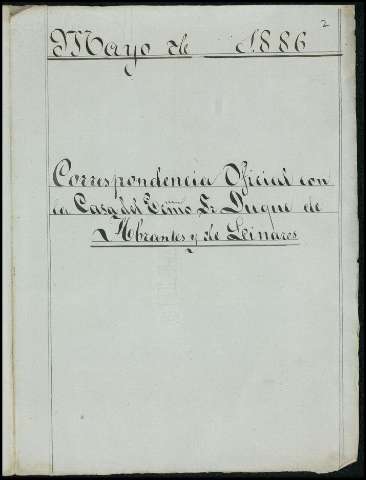 2
Mayo de 1886
Correspondencia Oficial con
la Casa del Exmo Sr Duque de
Abrantes y de Linares